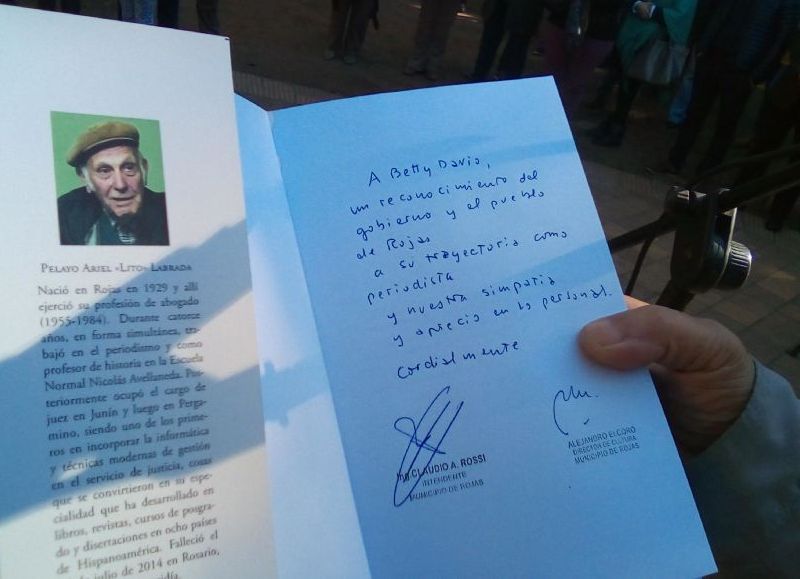 PELAYO ARIEL «LITO» LABRADA
Nació en Rojas en 1929 y allí
ejerció su profesión de abogado
(1955-1984). Durante catorce
años, en forma simultánea, tra-
bajó en el periodismo y como
profesor de historia en la Escuela
Normal Nicolás Avellaneda. Pos-
teriormente ocupó el cargo de
juez en Junín y luego en Perga-
mino, siendo uno de los prime-
ros en incorporar la informática
y técnicas modernas de gestión
en el servicio de justicia, cosas
que se convirtieron en su espe-
cialidad que ha desarrollado en
libros, revistas, cursos de posgra-
do y disertaciones en ocho países
de Hispanoamérica. Falleció el
de julio de 2014 en Rosario,
A Betty Davis,
un reconocimiento del
gobierno y el pueblo
de Rojas
a su trayectoria como
periodista
y nuestra simpatia
y aprecio en lo personal.
Cordialmente
CLAUDIO A. ROSSI
INTENDENTE
MUNICIPIO DE ROJAS
ALEJANDRO ELCORO
DIRECTOR DE CULTURA
MUNICIPIO DE ROJAS